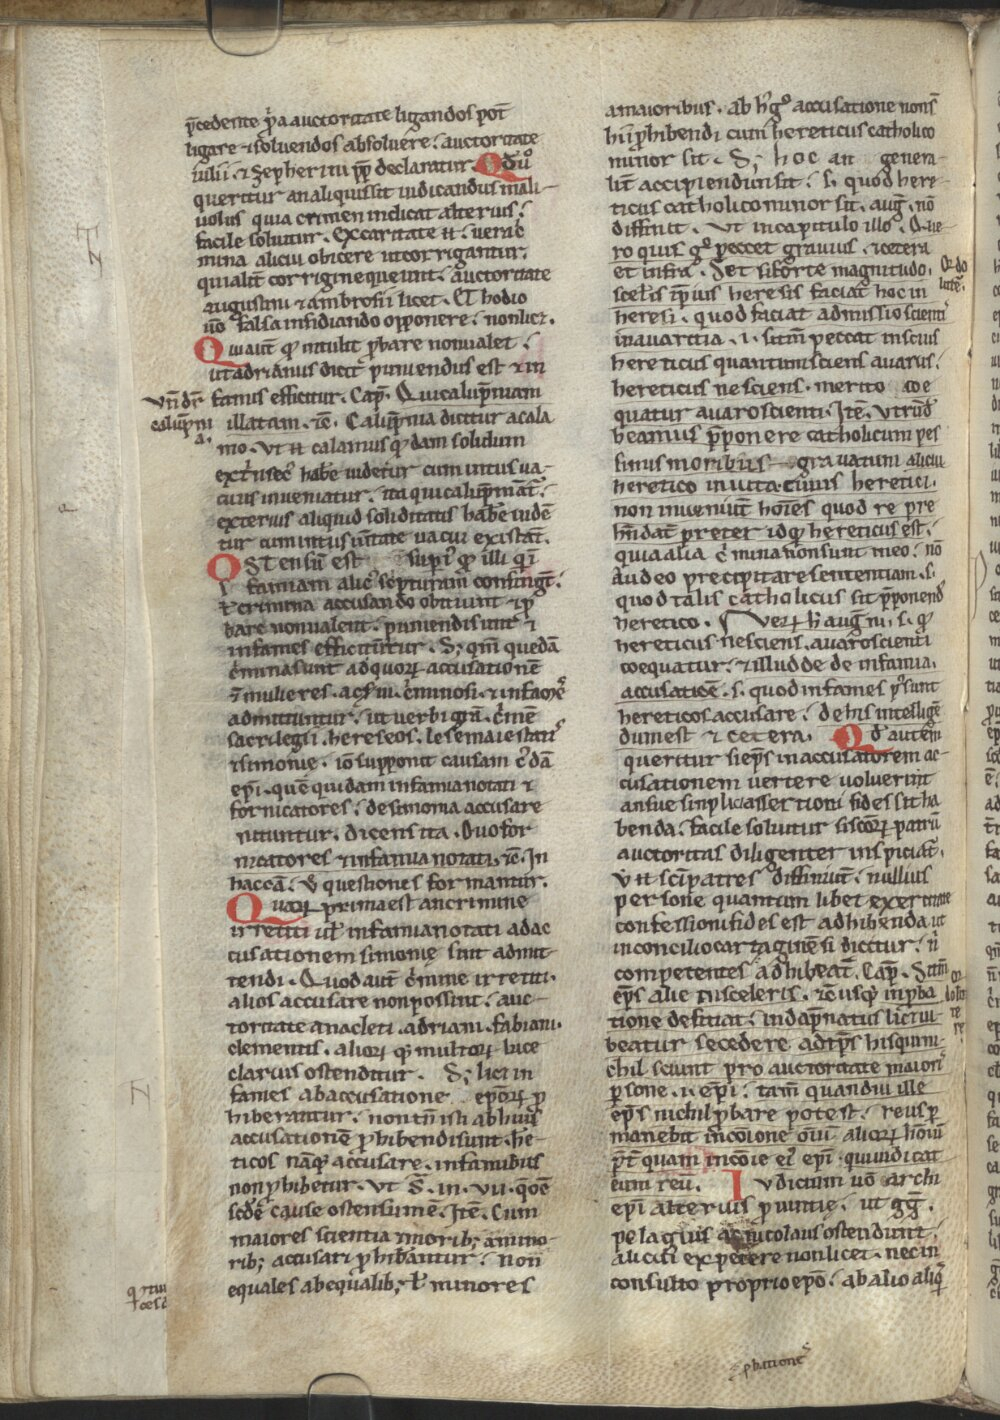 p̄cedente p̓a auctoritate ligandos pot̄
ligare ⁊ soluendos absoluere. auctoritate
iulii. ⁊ Zepherini pp̄ declaratur. Qd̄ u̓o
queritur an aliquis sit iudicandus mali-
uolus quia crimen indicat alterius.
facile soluitur. ex caritate .n. ueri c̓
mina alicui obicere ut corrigantur.
qualit̄ corrigi nequeunt. auctoritate
augustini ⁊ ambrosii licet. Et hodio
u̓o falsa insidiando opponere. non licz.
Qui aut̄ qđ intulit p̱bare non ualet.
ut adrianus dicit puniendus est ⁊ in
famis efficitur. Cap̄. Qui calūpniam
illatam. ⁊c̄. Calūpnia dicitur a cala
mo. Vt .n. calamus quoddam solidum
ext̓nsec̓ habe uidetur cum intus ua-
cuus inueniatur. ita qui calūpniāt̄.
exterius aliquid soliditatis habe uidē
tur cum intus ueritate uacui existāt.
Ostensū est sup̓i qđ illi qi
famiam alic̓ scripturam confingūt.
ł crimina accusando obiciunt ⁊ p̱
bare non ualent. puniendi sunt ⁊
infames efficiuntur. S; qm̄ quedā
c̓mina sunt ad quoꝝ accusationē
⁊ mulieres. ac s̓ui. c̓minosi. ⁊ infames
admittuntur. ut uerbi gr̄a. c̓mē
sacrilegii. hereseos. lese maiestatis
⁊ simonie. iō supponit causam c̓dā
ep̄i. quē quidam infamia notati ⁊
fornicatores. de simonia accusare
nituntur. dicens ita. Duo for
nicatores ⁊ infamia notati. ⁊c̄. In
hac cā. v̓ questiones formantur.
Quaꝝ prima est an crimine
irretiti ul̓ infamia notati ad ac
cusationem simonię sint admit-
tendi. Quod aut̄ c̓mine irretiti.
alios accusare non possint. auc-
toritate anacleti. adriani. fabiani.
clementis. alioꝝ qꝫ multoꝝ luce
clarius ostenditur. S; licet in
fames ab accusatione ep̄oꝝ p̱
hibeantur. non tn̄ isti ab huius
accusationē p̱hibendi sunt. he-
ticos nāqꝫ accusare. infamibus
non p̱hibetur. Vt S̄. in. vii. q̄ōe
scd̄e cause ostensum ē. Itē. Cum
maiores scientia ⁊ morib; a mino-
rib; accusari p̱hibeantur. non
equales ab equalib; ł minores
a maioribus. ab h̓ gº accusatione non s̄
hii p̱hibendi cum hereticus catholico
minor sit. S; hoc an genera-
lit̄ accipiendum sit. s. quod here-
ticus catholico minor sit. aug̓. nō
diffinit. Vt in capitulo illo. Que-
ro quis gº peccet grauius. ⁊ cetera
et infra. Set si forte magnitudo.
sceleris ip̄ius heresis faciat hoc in
heresi. quod faciat admissio scienti
in auaritia. .i. si tm̄ peccat inscius
hereticus quantum sciens auarus.
hereticus nesciens. merito coe
quatur auaro scienti. Itē. Vtrū d̓
beamus p̄ponere catholicum pes
simus moribus grauatum alicui
heretico in uita cuius heretici.
non inueniūt hoīes quod repre
hn̄dāt preter id qđ hereticus est.
quia alia c̓mina non sunt in eo. nō
audeo precipitare sententiam. s.
quod talis catholicus sit p̄ponend̓
heretico. Veꝝ h̓ aug̓ni. s. qđ
hereticus nesciens. auaro scienti
coequatur. ⁊ illud de de infamia.
accusatiōe. s. quod infames p̱sunt
hereticos accusare. de his intellige
dum est ⁊ cetera. Qd̄ autem
queritur si ep̄s in accusatorem ac-
cusationem uertere uoluerit
an sue simplici assertioni fides sit ha
benda. facile soluitur si scōꝝ patrū
auctoritas diligenter inspiciat̄.
Vt .n. scī patres diffiniūt. nullius
persone quantum libet exercitate
confessioni fides est adhibenda. ut
in concilio cartaginēsi dicitur. n̄
competentes adhibeat̄. Cap̄. Si tm̄
ep̄s alic̓ tu sceleris. ⁊c̄ usqꝫ in p̱ba
tione deficiat. in dāp̄natus licrui-
beatur secedere ad tp̄s his qui ni-
chil sciunt pro auctoritate maiori
p̱sone. .i. ep̄i. tam̄ quandiu ille
ep̄s nichil p̱bare potest. reus p̱
manebit in cōione oīum alioꝝ hoīum
p̄t̓quam in cōie ei̓ ep̄i. qui iudicat
eum reū. Iudicium u̓o archi
ep̄i alterius prouintię. ut gg̓.
pelagius ac nicolaus ostendunt.
aucti expetere non licet. nec in
consulto proprio ep̄o. ab alio aliq̓